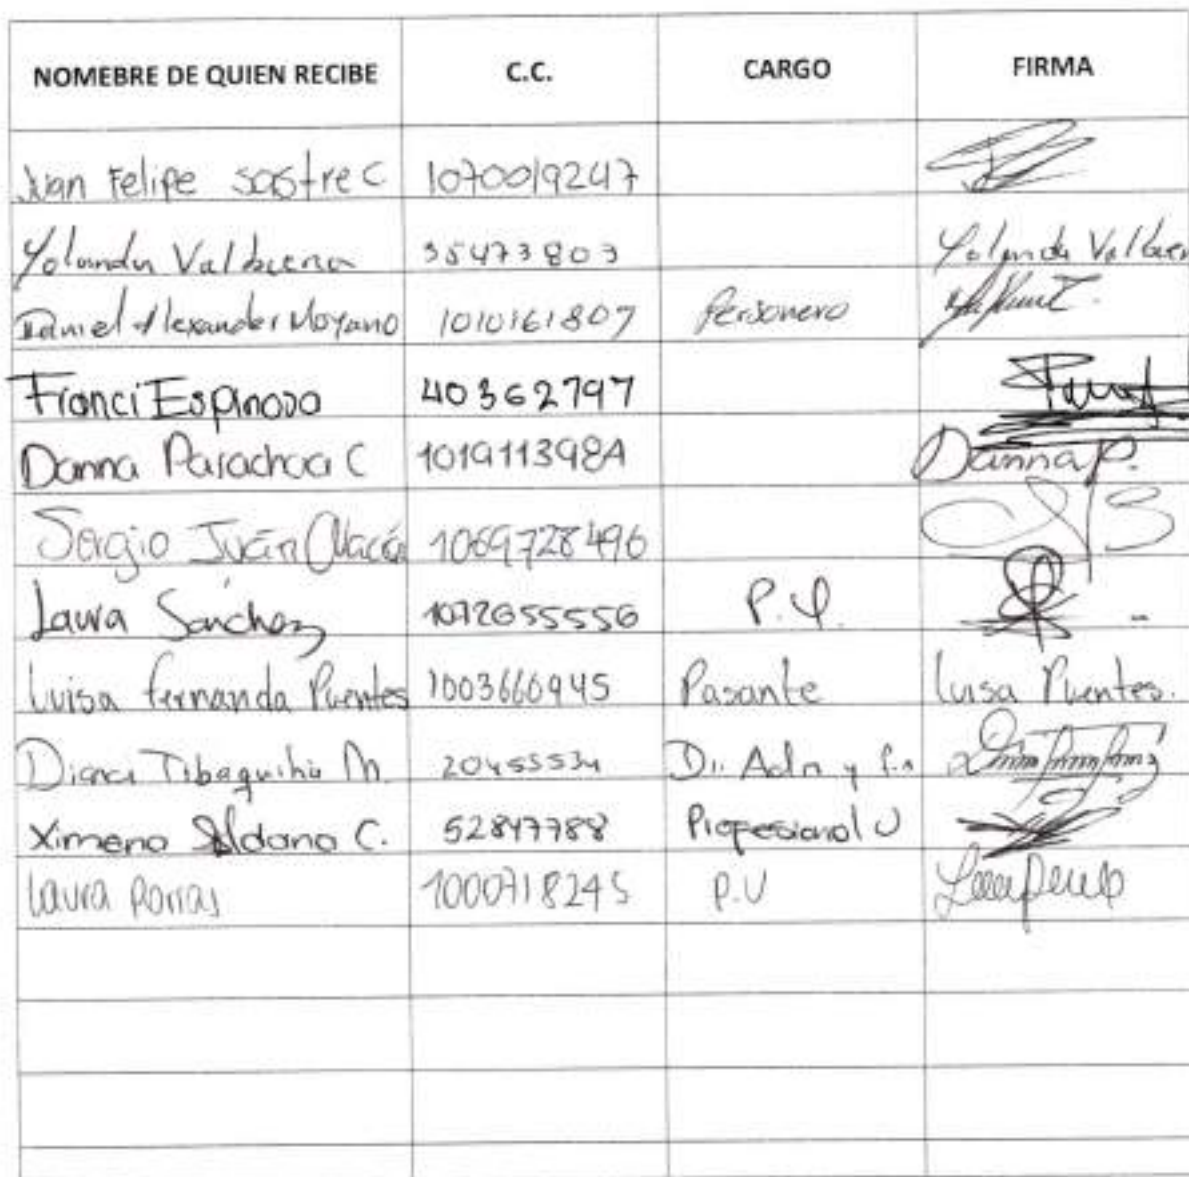 NOMEBRE DE QUIEN RECIBE C.C. CARGO FIRMA
Juan Felipe Sastre C 1070019247
Yolanda Valbuena 35473803 Yolanda Valbuen
Daniel Alexander Moyano 1010161807 Personero
Franci Espinosa 40362797
Danna Parachoa C 1019113984 Danna P.
Sergio Iván 1069728496
Laura Sánchez 1072655556 P.U.
Luisa fernanda Puentes 1003660945 Pasante Luisa Puentes.
Diana Tibaquiha M. 20455534 Dir Adm y fin
Ximena Aldana C. 52847788 Profesional U
Laura Porras 1000718245 P.U